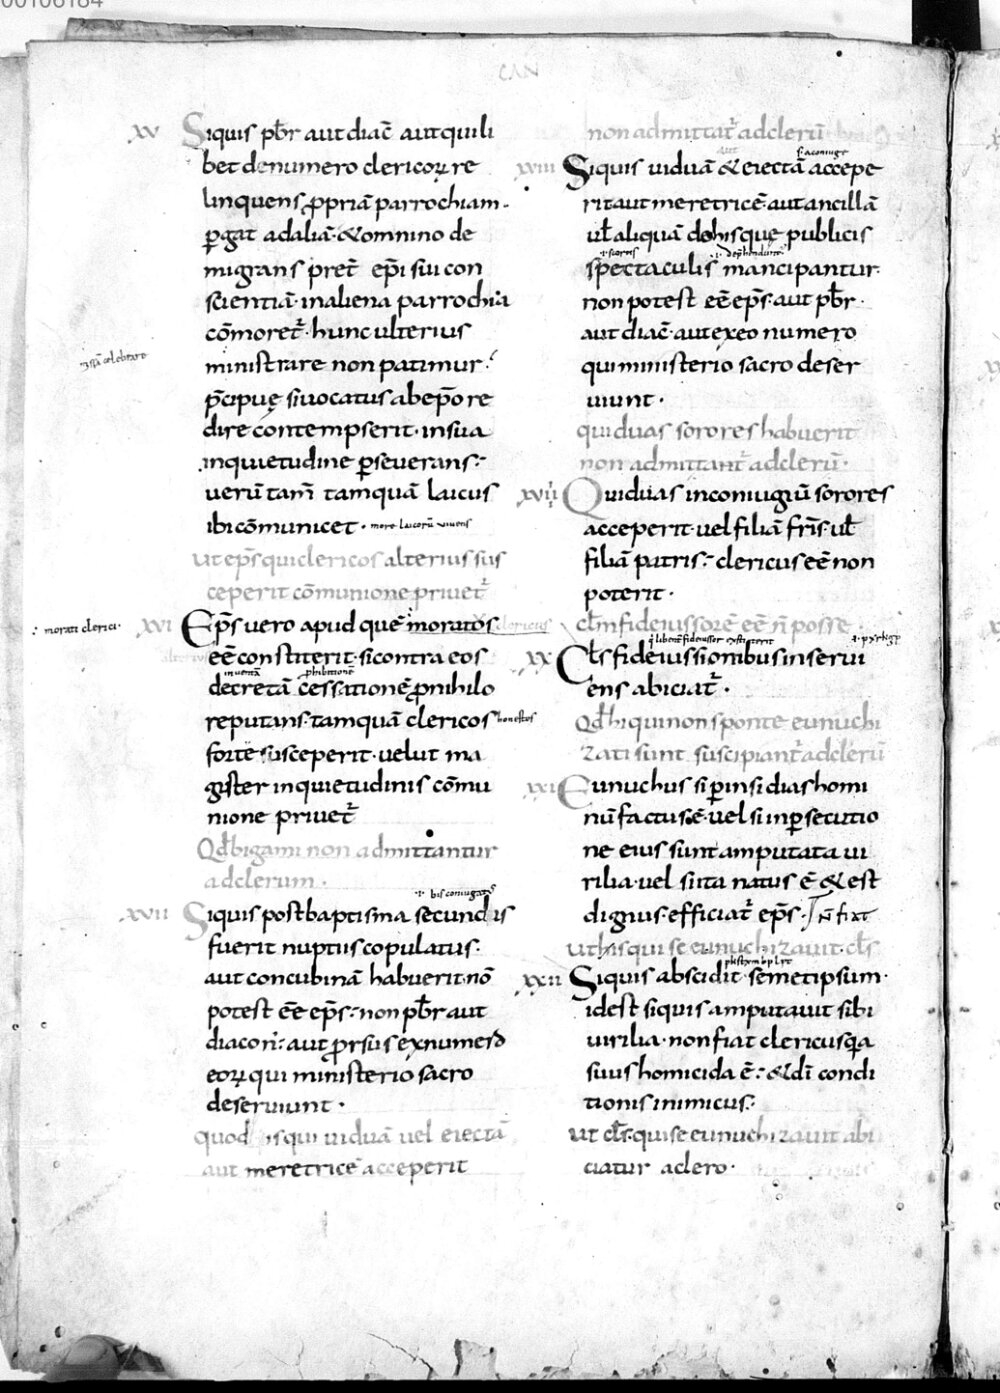 00106184
CAN
xv Siquis pb̄r aut diac̄ aut quili
bet de numero clericoꝝ re
linquens ꝓpriā parrochiam·
ꝑgat ad aliā· & omnino de
migrans pret̄ ep̄i sui con
scientiā· in aliena parrochia
cōmoret̄· hunc ulterius
ministrare non patimur·
p̄cipuę si uocatus ab ep̄o re
dire contempserit· in sua
inquietudine ꝑseuerans·
uerū tam̄ tamquā laicus
ibi cōmunicet· more laicorū uiuens
ut ep̄s qui clericos alterius sus
ceperit cōmunione priuet̄
: morati clerici·
xvi Ep̄s uero apud quē moratos clericus
eē constiterit· si contra eos
inuentā ꝓhibitionē
decretā cessationē ꝓ nihilo
reputans· tamquā clericos honestos
forte susceperit· uelut ma
gister inquietudinis cōmu
nione priuet̄
Qd̄ bigami non admittantur
ad clerum·
·i· bis coniugatꝰ
xvii Siquis post baptisma secundis
fuerit nuptiis copulatus·
aut concubinā habuerit· nō
potest eē ep̄s· non pb̄r aut
diacon̄· aut ꝓrsus ex numero
eoꝝ qui ministerio sacro
deseruiunt·
quod is qui uiduā uel eiectā
aut meretricē acceperit
non admittat̄ ad clerū
aut ·s· a coniuge
xviii Siquis uiduā & eiectā accepe
rit aut meretricē· aut ancillā
ul̄ aliquā de hisque publicis
spectaculis mancipantur·
non potest eē ep̄s· aut pb̄r·
aut diac̄· aut ex eo numero
qui ministerio sacro deser
uiunt·
qui duas sorores habuerit
non admittant̄ ad clerū·
xviiii Qui duas in coniugiū sorores
acceperit· uel filiā fr̄is· ul̄
filiā patris· clericus eē non
poterit·
cl̄m fideiussorē eē n̄ posse
xx Cl̄s fideiussionibus inserui
ens abiciat̄·
Qd̄ hi qui non sponte eunuchi
zati sunt suscipiant̄ ad clerū
xxi Eunuchus si ꝑ insidias homi
nū factus ē· uel si in ꝑsecutio
ne eius sunt amputata ui
rilia· uel si ita natus ē & est
dignus· efficiat̄ ep̄s· n̄ fiat
ut his qui se eunuchizauit· cl̄s
xxii Siquis abscidit semetipsum·
id est siquis amputauit sibi
uirilia· non fiat clericus q̄a
suus homicida ē· & dī condi
tionis inimicus·
ut cl̄s· qui se eunuchizauit abi
ciatur a clero·